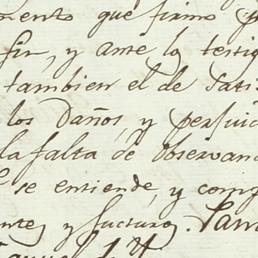 mento que firmo
fir, y ante los testig
tambien el de Sati
los Daños, y perjuic
la falta de observan
se entiende, y comp
ntes y facturo. San